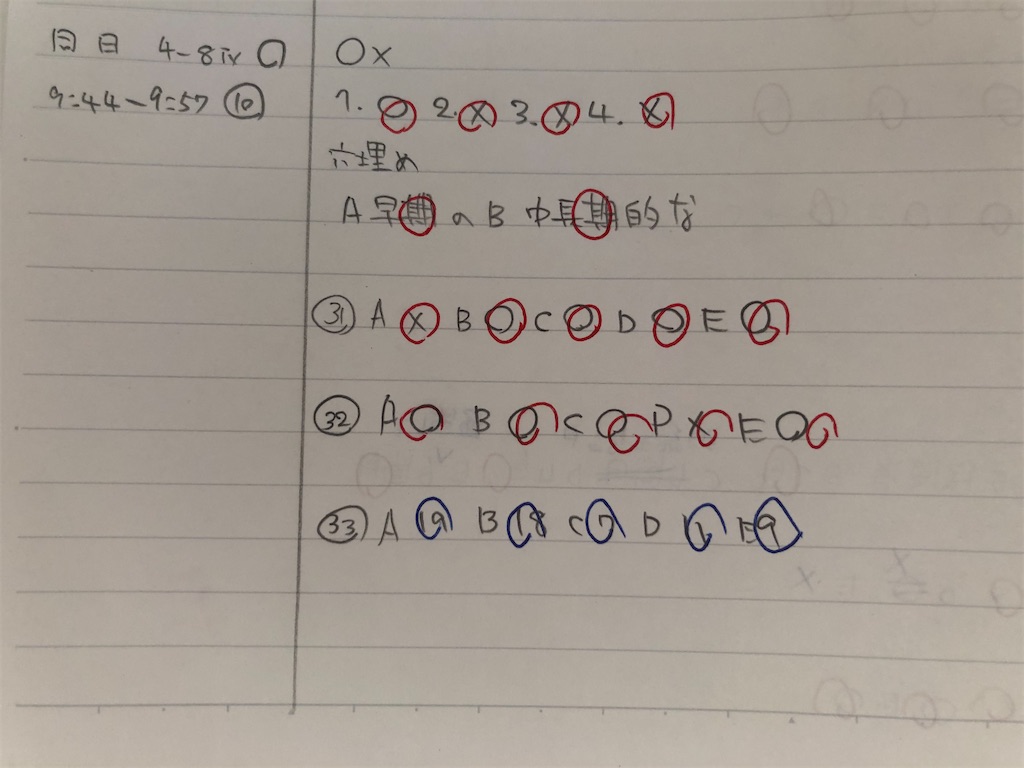 月日 4-8 iv ○
9=44-9=57 ⑩
○×
1. ○ 2. × 3. × 4. ×
穴埋め
A 早期の B 中長期的な
㉛ A × B ○ C ○ D ○ E ○
㉜ A ○ B ○ C ○ D × E ○
㉝ A 19 B 18 C 7 D 1 E 9